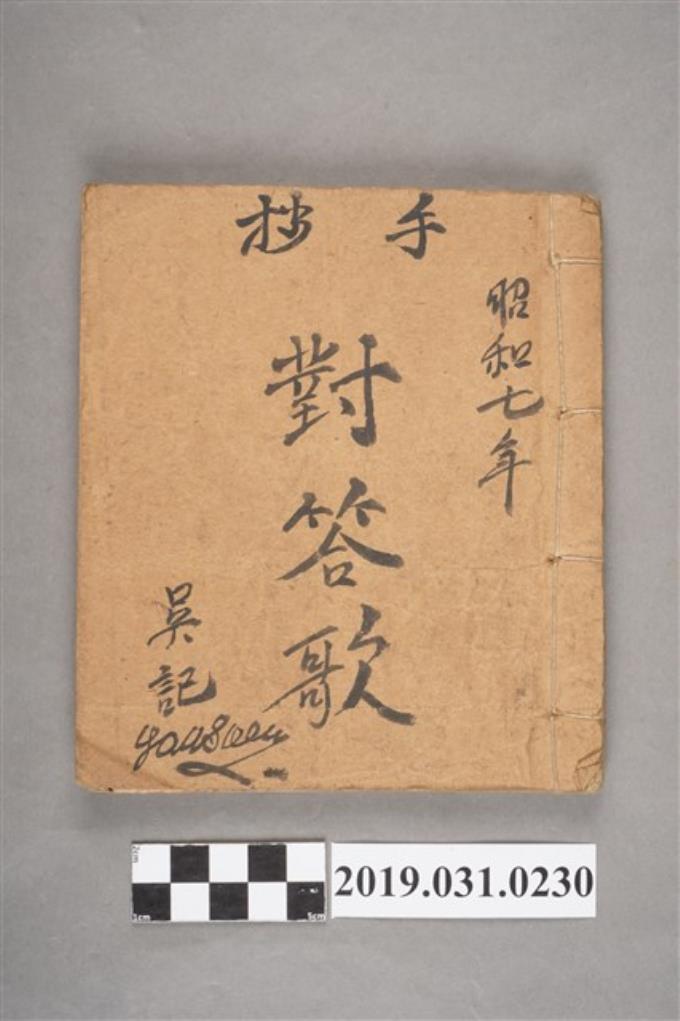 手抄
昭和七年
對答歌
吳記
2cm
1cm
5cm
2019.031.0230